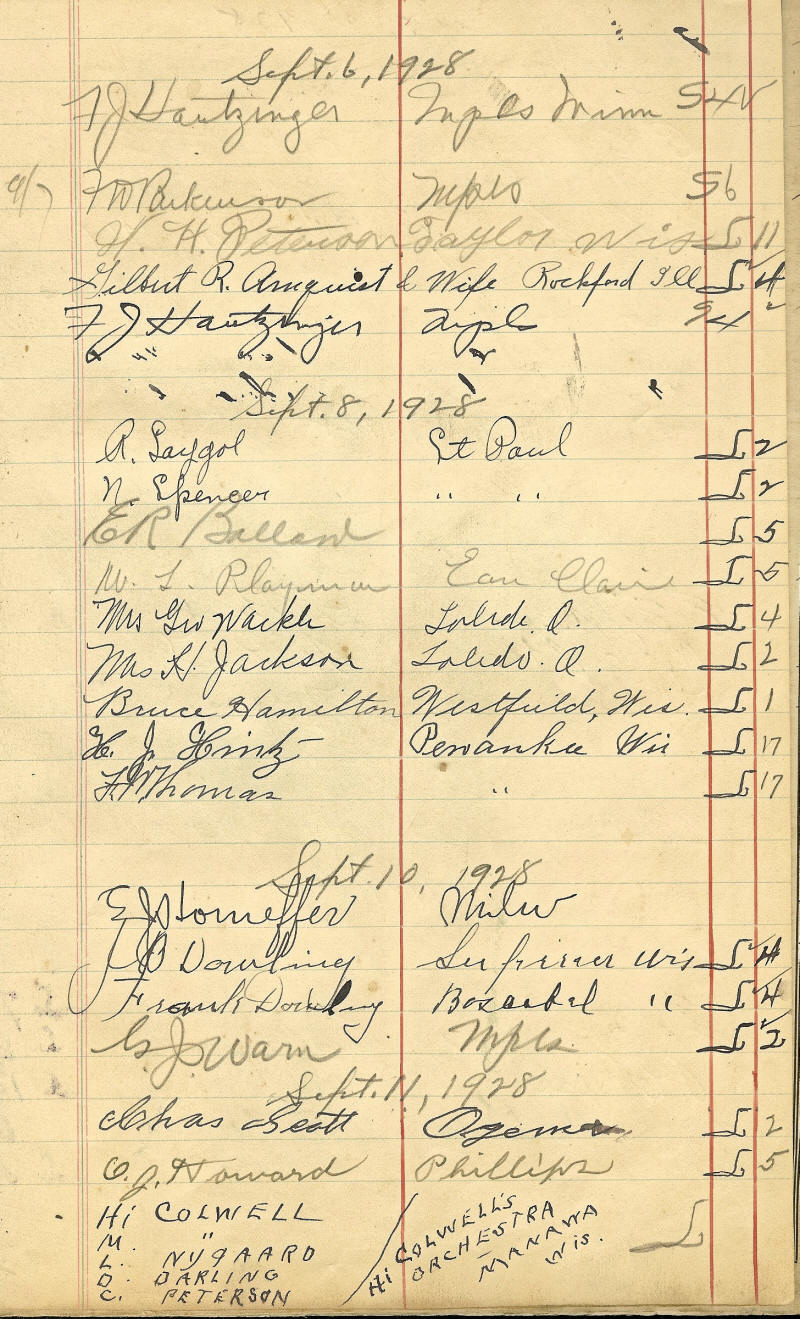 Sept. 6, 1928
F J Hautzinger Mpls Minn 54
9/7 F W Parkinson Mpls 56
H. H. Peterson Taylor Wis 11
Gilbert R. Amquist & Wife Rockford Ill 4
F J Hautzinger Mpls 4
" " " "
Sept. 8, 1928
R. Saygol St Paul 2
N. Spencer " " 2
E R Ballard 5
W. L. Eau Claire 5
Mrs Geo Toledo. O. 4
Mrs H. Jackson Toledo. O. 2
Bruce Hamilton Westfield, Wis. 1
H. J. Hintz Pewaukee Wis 17
Thomas " 17
Sept. 10, 1928
E J Horneffer Milw
J P Dowling Superior Wis 4
Frank Dowling Boscobel " 4
G. J. Warn Mpls 2
Sept. 11, 1928
Chas Scott Ogema 2
O. J. Howard Phillips 5
Hi COLWELL
M. "
L. NYGAARD
D. DARLING
C. PETERSON
Hi COLWELL'S
ORCHESTRA
MANAWA
Wis.